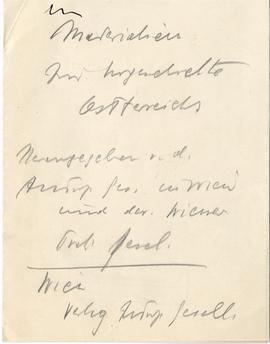 Materialien
zur Urgeschichte
Österreichs
Herausgegeben v. d.
Anthrop. Ges. in Wien
und der Wiener
Präh. Gesell.
Wien
Verlag Anthrop. Gesell.